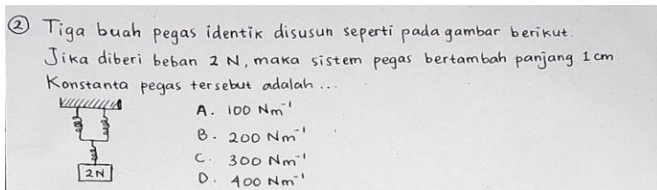 ② Tiga buah pegas identik disusun seperti pada gambar berikut.
Jika diberi beban 2 N, maka sistem pegas bertambah panjang 1 cm.
Konstanta pegas tersebut adalah ...
A. 100 Nm⁻¹
B. 200 Nm⁻¹
C. 300 Nm⁻¹
D. 400 Nm⁻¹
2N